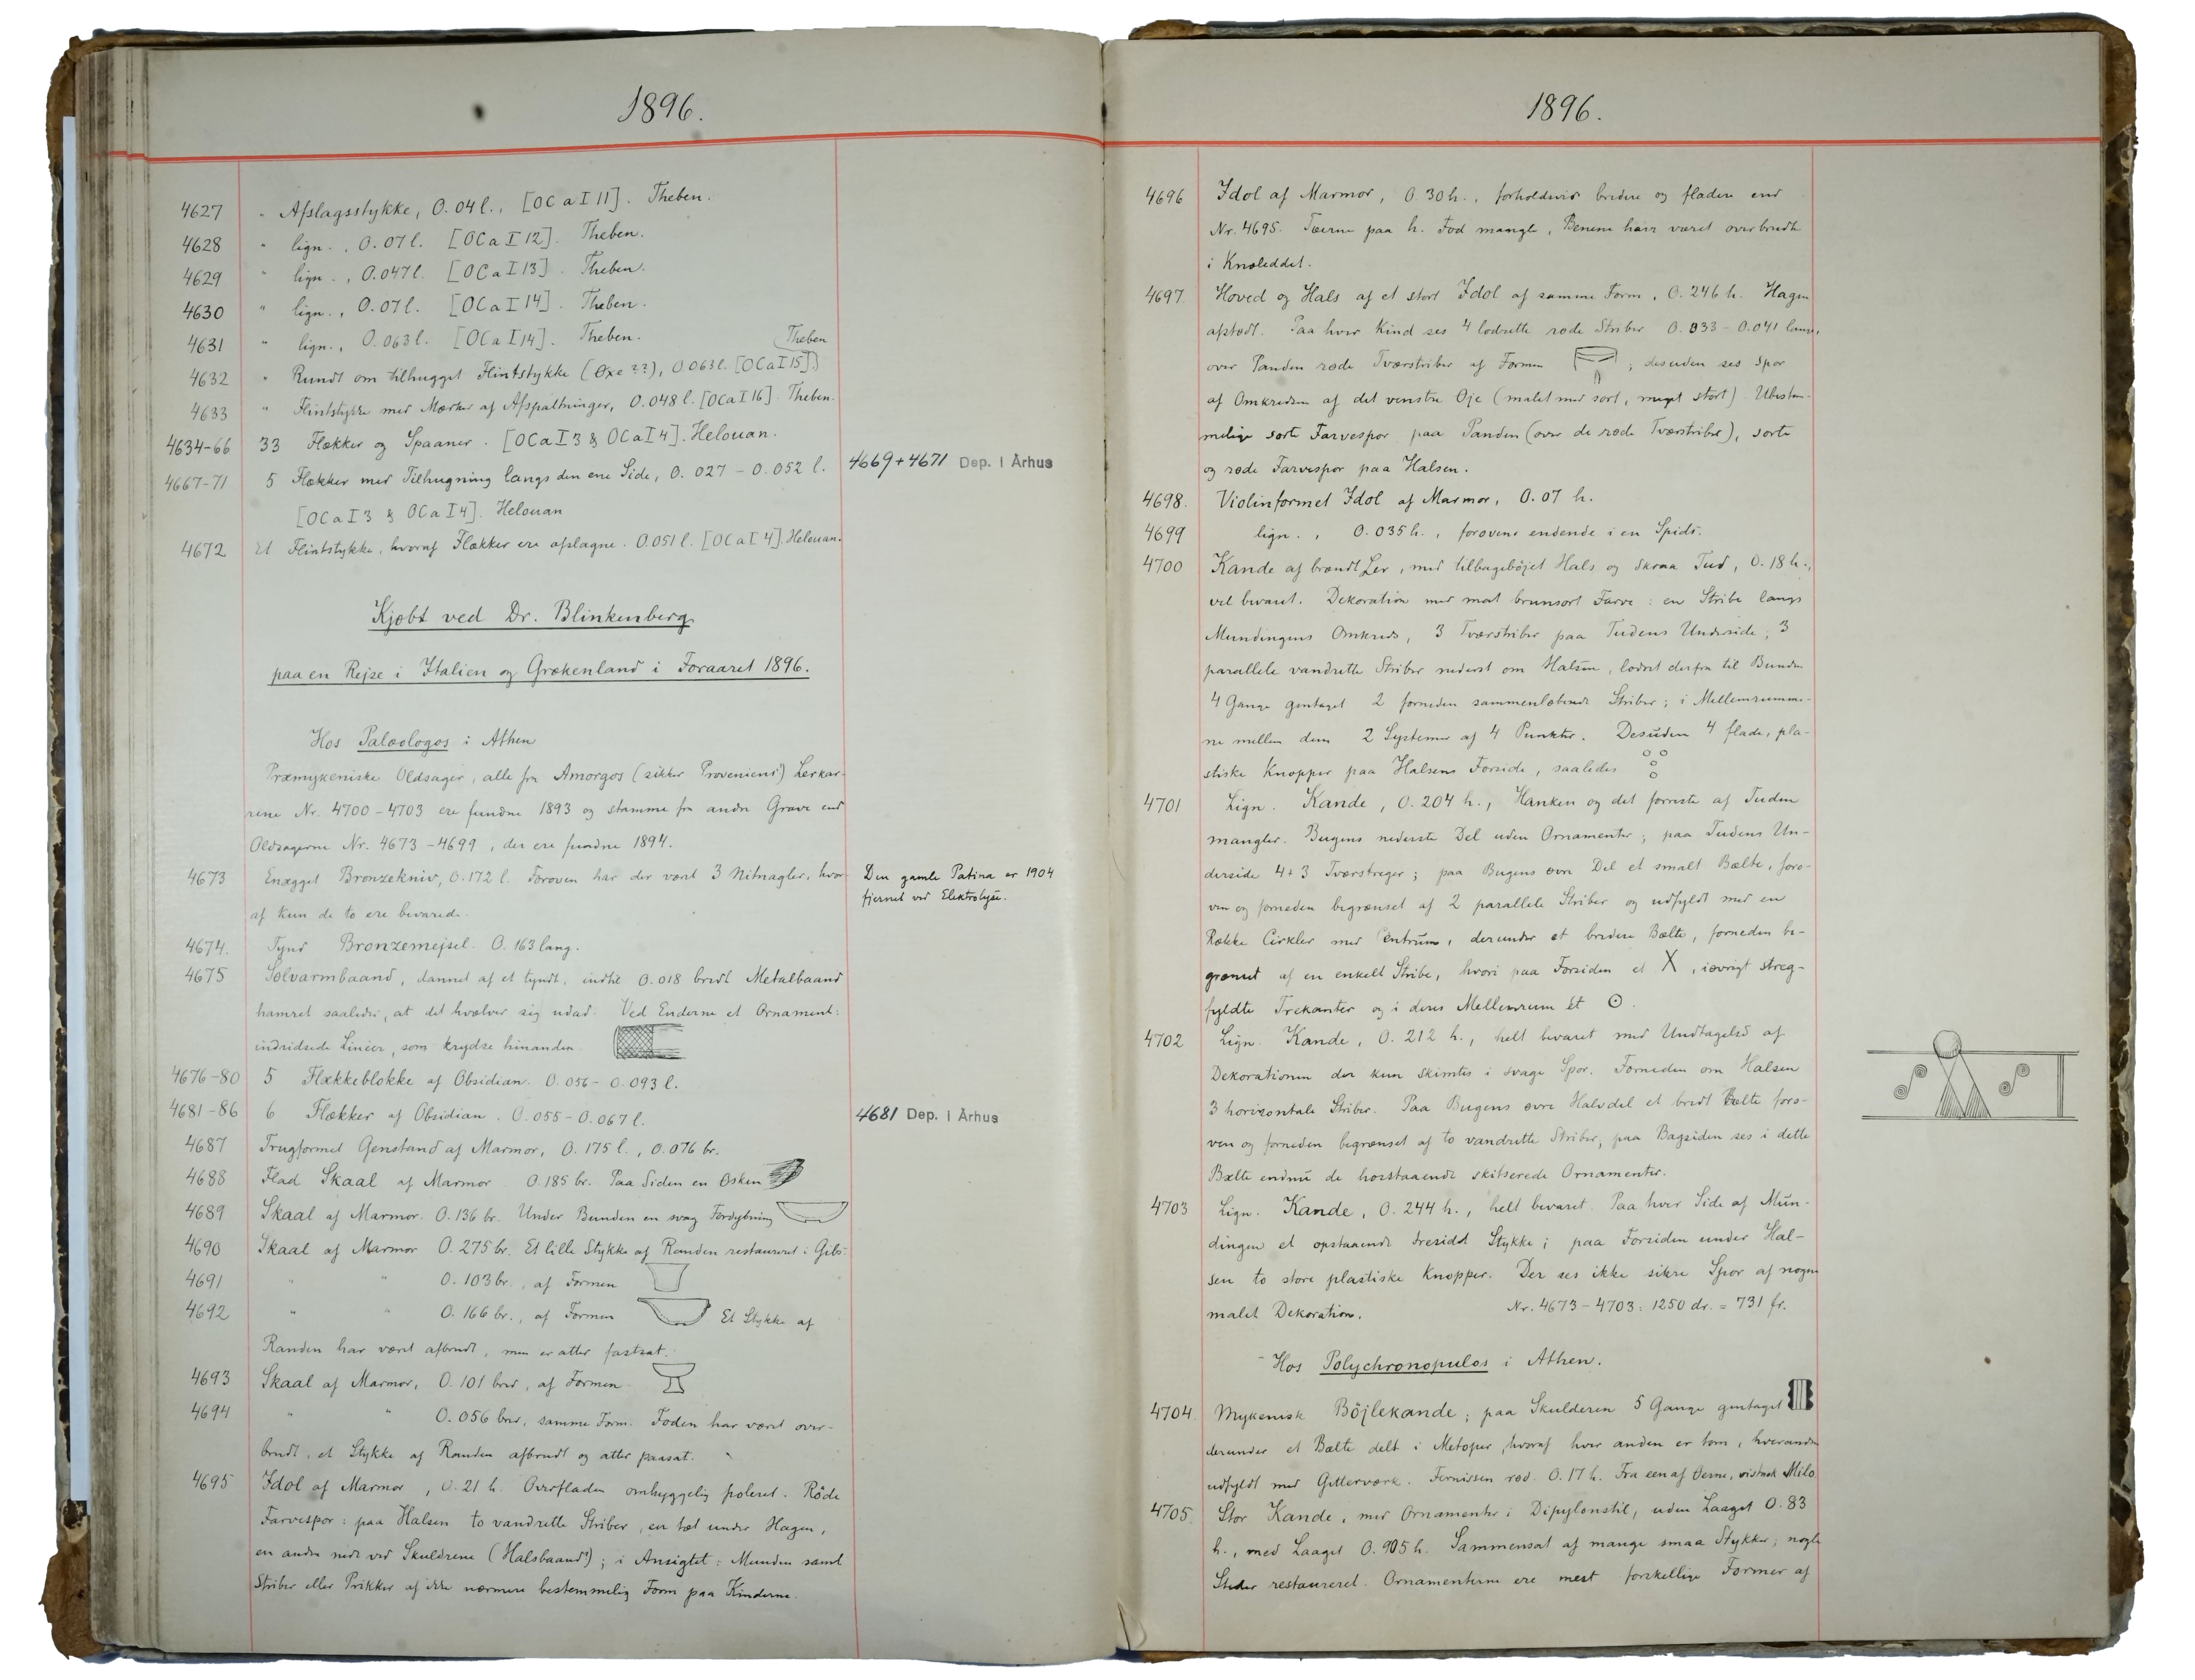 1896.
4627 " Afslagsstykke, 0.04 l., [OCaI11]. Theben.
4628 " lign., 0.07 l. [OCaI12]. Theben.
4629 " lign., 0.047 l. [OCaI13]. Theben.
4630 " lign., 0.07 l. [OCaI14]. Theben.
4631 " lign., 0.063 l. [OCaI14]. Theben.
Theben
4632 " Rundt om tilhugget Flintstykke (Øxe??), 0.063 l. [OCaI15]
4633 " Flintstykke med Mærker af Afspaltninger, 0.048 l. [OCaI16]. Theben.
4634-66 33 Flækker og Spaaner. [OCaI3 & OCaI4]. Helouan.
4667-71 5 Flækker med Tilhugning langs den ene Side, 0.027 - 0.052 l. 4669+4671 Dep. i Århus
[OCaI3 & OCaI4]. Helouan
4672 Et Flintstykke, hvoraf Flækker ere afslagne. 0.051 l. [OCaI4]. Helouan.
Kjøbt ved Dr. Blinkenberg
paa en Rejse i Italien og Grækenland i Foraaret 1896.
Hos Palæologos i Athen
Præmykeniske Oldsager, alle fra Amorgos (sikker Proveniens) Lerkar-
rene Nr. 4700 - 4703 ere fundne 1893 og stamme fra andre Grave end
Oldsagerne Nr. 4673 - 4699, der ere fundne 1894.
4673 Enægget Bronzekniv, 0.172 l. Foroven har der været 3 Nitnagler, hvor- Den gamle Patina er 1904
af kun de to ere bevarede. fjernet ved Elektrolyse.
4674. Tynd Bronzemejsel. 0.163 lang.
4675 Sølvarmbaand, dannet af et tyndt, indtil 0.018 bredt Metalbaand
hamret saaledes, at det hvælver sig udad. Ved Enderne et Ornament:
indridsede Linier, som krydse hinanden.
4676-80 5 Flækkeblokke af Obsidian. 0.056 - 0.093 l.
4681-86 6 Flækker af Obsidian. 0.055 - 0.067 l. 4681 Dep. i Århus
4687 Trugformet Genstand af Marmor, 0.175 l., 0.076 br.
4688 Flad Skaal af Marmor 0.185 br. Paa Siden en Øsken
4689 Skaal af Marmor. 0.136 br. Under Bunden en svag Fordybning
4690 Skaal af Marmor 0.275 br. Et lille Stykke af Randen restaureret i Gibs.
4691 " " 0.103 br., af Formen
4692 " " 0.166 br., af Formen Et Stykke af
Randen har været afbrudt, men er atter fastsat.
4693 Skaal af Marmor, 0.101 bred, af Formen
4694 " " 0.056 bred, samme Form. Foden har været over-
brudt, et Stykke af Randen afbrudt og atter paasat.
4695 Idol af Marmor, 0.21 h. Overfladen omhyggelig poleret. Røde
Farvespor: paa Halsen to vandrette Striber, en tæt under Hagen,
en anden nede ved Skuldrene (Halsbaand?); i Ansigtet: Munden samt
Striber eller Prikker af ikke nærmere bestemmelig Form paa Kinderne.
1896.
4696 Idol af Marmor, 0.30 h., forholdsvis bredere og fladere end
Nr. 4695. Tæerne paa h. Fod mangle, Benene have været overbrudte
i Knæleddet.
4697. Hoved og Hals af et stort Idol af samme Form, 0.246 h. Hagen
afstødt. Paa hver Kind ses 4 lodrette røde Striber 0.033 - 0.041 lange,
over Panden røde Tværstriber af Formen ; desuden ses Spor
af Omkredsen af det venstre Øje (malet med sort, meget stort). Ubestem-
melige sorte Farvespor paa Panden (over de røde Tværstriber), sorte
og røde Farvespor paa Halsen.
4698. Violinformet Idol af Marmor, 0.07 h.
4699 lign., 0.035 h., foroven endende i en Spids.
4700 Kande af brændt Ler, med tilbagebøjet Hals og skraa Tud, 0.18 h.,
vel bevaret. Dekoration med mat brunsort Farve: en Stribe langs
Mundingens Omkreds, 3 Tværstriber paa Tudens Underside; 3
parallele vandrette Striber nederst om Halsen, lodret derfra til Bunden
4 Gange gentaget 2 forneden sammenløbende Striber; i Mellemrumme-
ne mellem dem 2 Systemer af 4 Punkter. Desuden 4 flade, pla-
stiske Knopper paa Halsens Forside, saaledes
4701 Lign. Kande, 0.204 h., Hanken og det forreste af Tuden
mangler. Bugens nederste Del uden Ornamenter; paa Tudens Un-
derside 4+3 Tværstreger; paa Bugens øvre Del et smalt Bælte, foro-
ven og forneden begrænset af 2 parallele Striber og udfyldt med en
Række Cirkler med Centrum, derunder et bredere Bælte, forneden be-
grænset af en enkelt Stribe, hvori paa Forsiden et X, iøvrigt streg-
fyldte Trekanter og i deres Mellemrum et ⊙.
4702 Lign. Kande, 0.212 h., helt bevaret med Undtagelse af
Dekorationen der kun skimtes i svage Spor. Forneden om Halsen
3 horizontale Striber. Paa Bugens øvre Halvdel et bredt Bælte foro-
ven og forneden begrænset af to vandrette Striber; paa Bagsiden ses i dette
Bælte endnu de hosstaaende skitserede Ornamenter.
4703 Lign. Kande, 0.244 h., helt bevaret. Paa hver Side af Mun-
dingen et opstaaende tresidet Stykke; paa Forsiden under Hal-
sen to store plastiske Knopper. Der ses ikke sikre Spor af nogen
malet Dekoration. Nr. 4673 - 4703: 1250 dr. = 731 fr.
Hos Polychronopulos i Athen.
4704. Mykenisk Bøjlekande; paa Skulderen 5 Gange gentaget
derunder et Bælte delt i Metoper, hvoraf hver anden er tom, hveranden
udfyldt med Gitterværk. Fernissen rød. 0.17 h. Fra een af Øerne, vistnok Milo.
4705. Stor Kande, med Ornamenter i Dipylonstil, uden Laaget 0.83
h., med Laaget 0.905 h. Sammensat af mange smaa Stykker; nogle
Steder restaureret. Ornamenterne ere mest forskellige Former af